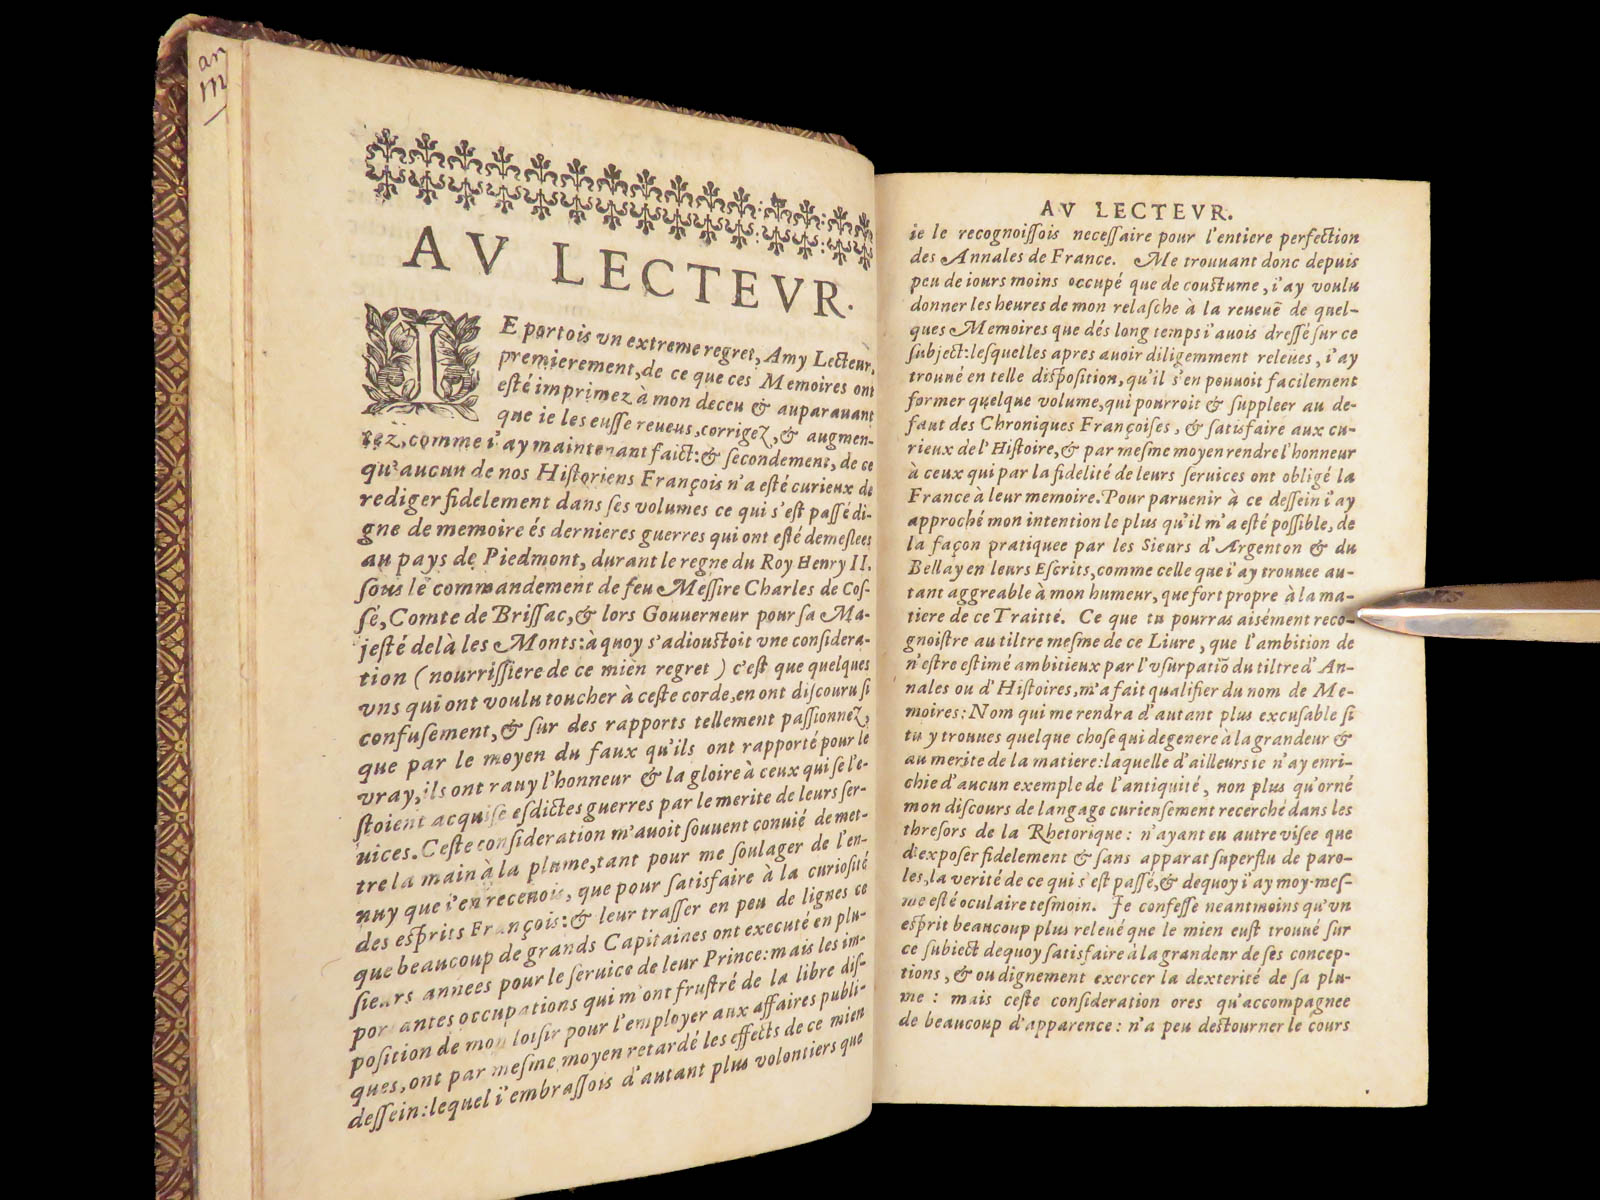 an
m
AV LECTEVR.
IE portois vn extreme regret, Amy Lecteur,
premierement, de ce que ces Memoires ont
esté imprimez à mon deceu & auparauant
que ie les eusse reueus, corrigez, & augmen-
tez, comme i'ay maintenant faict: & secondement, de ce
qu'aucun de nos Historiens François n'a esté curieux de
rediger fidelement dans ses volumes ce qui s'est passé di-
gne de memoire és dernieres guerres qui ont esté demeslees
au pays de Piedmont, durant le regne du Roy Henry II.
sous le commandement de feu Messire Charles de Cos-
sé, Comte de Brissac, & lors Gouuerneur pour sa Ma-
jesté delà les Monts: à quoy s'adioustoit vne considera-
tion (nourrissiere de ce mien regret) c'est que quelques
vns qui ont voulu toucher à ceste corde, en ont discouru si
confusement, & sur des rapports tellement passionnez,
que par le moyen du faux qu'ils ont rapporté pour le
vray, ils ont rauy l'honneur & la gloire à ceux qui se l'e-
stoient acquise esdictes guerres par le merite de leurs ser-
uices. Ceste consideration m'auoit souuent conuié de met-
tre la main à la plume, tant pour me soulager de l'en-
nuy que i'en receuois, que pour satisfaire à la curiosité
des esprits François: & leur trasser en peu de lignes ce
que beaucoup de grands Capitaines ont executé en plu-
sieurs annees pour le seruice de leur Prince: mais les im-
portantes occupations qui m'ont frustré de la libre dis-
position de mon loisir pour l'employer aux affaires publi-
ques, ont par mesme moyen retardé les effects de ce mien
dessein: lequel i'embrassois d'autant plus volontiers que
AV LECTEVR.
ie le recognoissois necessaire pour l'entiere perfection
des Annales de France. Me trouuant donc depuis
peu de iours moins occupé que de coustume, i'ay voulu
donner les heures de mon relasche à la reueuë de quel-
ques Memoires que dés long temps i'auois dressé sur ce
subject: lesquelles apres auoir diligemment releües, i'ay
trouué en telle disposition, qu'il s'en pouuoit facilement
former quelque volume, qui pourroit & suppleer au de-
faut des Chroniques Françoises, & satisfaire aux cu-
rieux de l'Histoire, & par mesme moyen rendre l'honneur
à ceux qui par la fidelité de leurs seruices ont obligé la
France à leur memoire. Pour paruenir à ce dessein i'ay
approché mon intention le plus qu'il m'a esté possible, de
la façon pratiquee par les Sieurs d'Argenton & du
Bellay en leurs Escrits, comme celle que i'ay trouuee au-
tant aggreable à mon humeur, que fort propre à la ma-
tiere de ce Traitté. Ce que tu pourras aisément reco-
gnoistre au tiltre mesme de ce Liure, que l'ambition de
n'estre estimé ambitieux par l'vsurpatiō du tiltre d'An-
nales ou d'Histoires, m'a fait qualifier du nom de Me-
moires: Nom qui me rendra d'autant plus excusable si
tu y trouues quelque chose qui degenere à la grandeur &
au merite de la matiere: laquelle d'ailleurs ie n'ay enri-
chie d'aucun exemple de l'antiquité, non plus qu'orné
mon discours de langage curieusement recerché dans les
thresors de la Rhetorique: n'ayant eu autre visee que
d'exposer fidelement & sans apparat superflu de paro-
les, la verité de ce qui s'est passé, & dequoy i'ay moy-mes-
me esté oculaire tesmoin. Je confesse neantmoins qu'vn
esprit beaucoup plus releué que le mien eust trouué sur
ce subiect dequoy satisfaire à la grandeur de ses concep-
tions, & ou dignement exercer la dexterité de sa plu-
me: mais ceste consideration ores qu'accompagnee
de beaucoup d'apparence: n'a peu destourner le cours